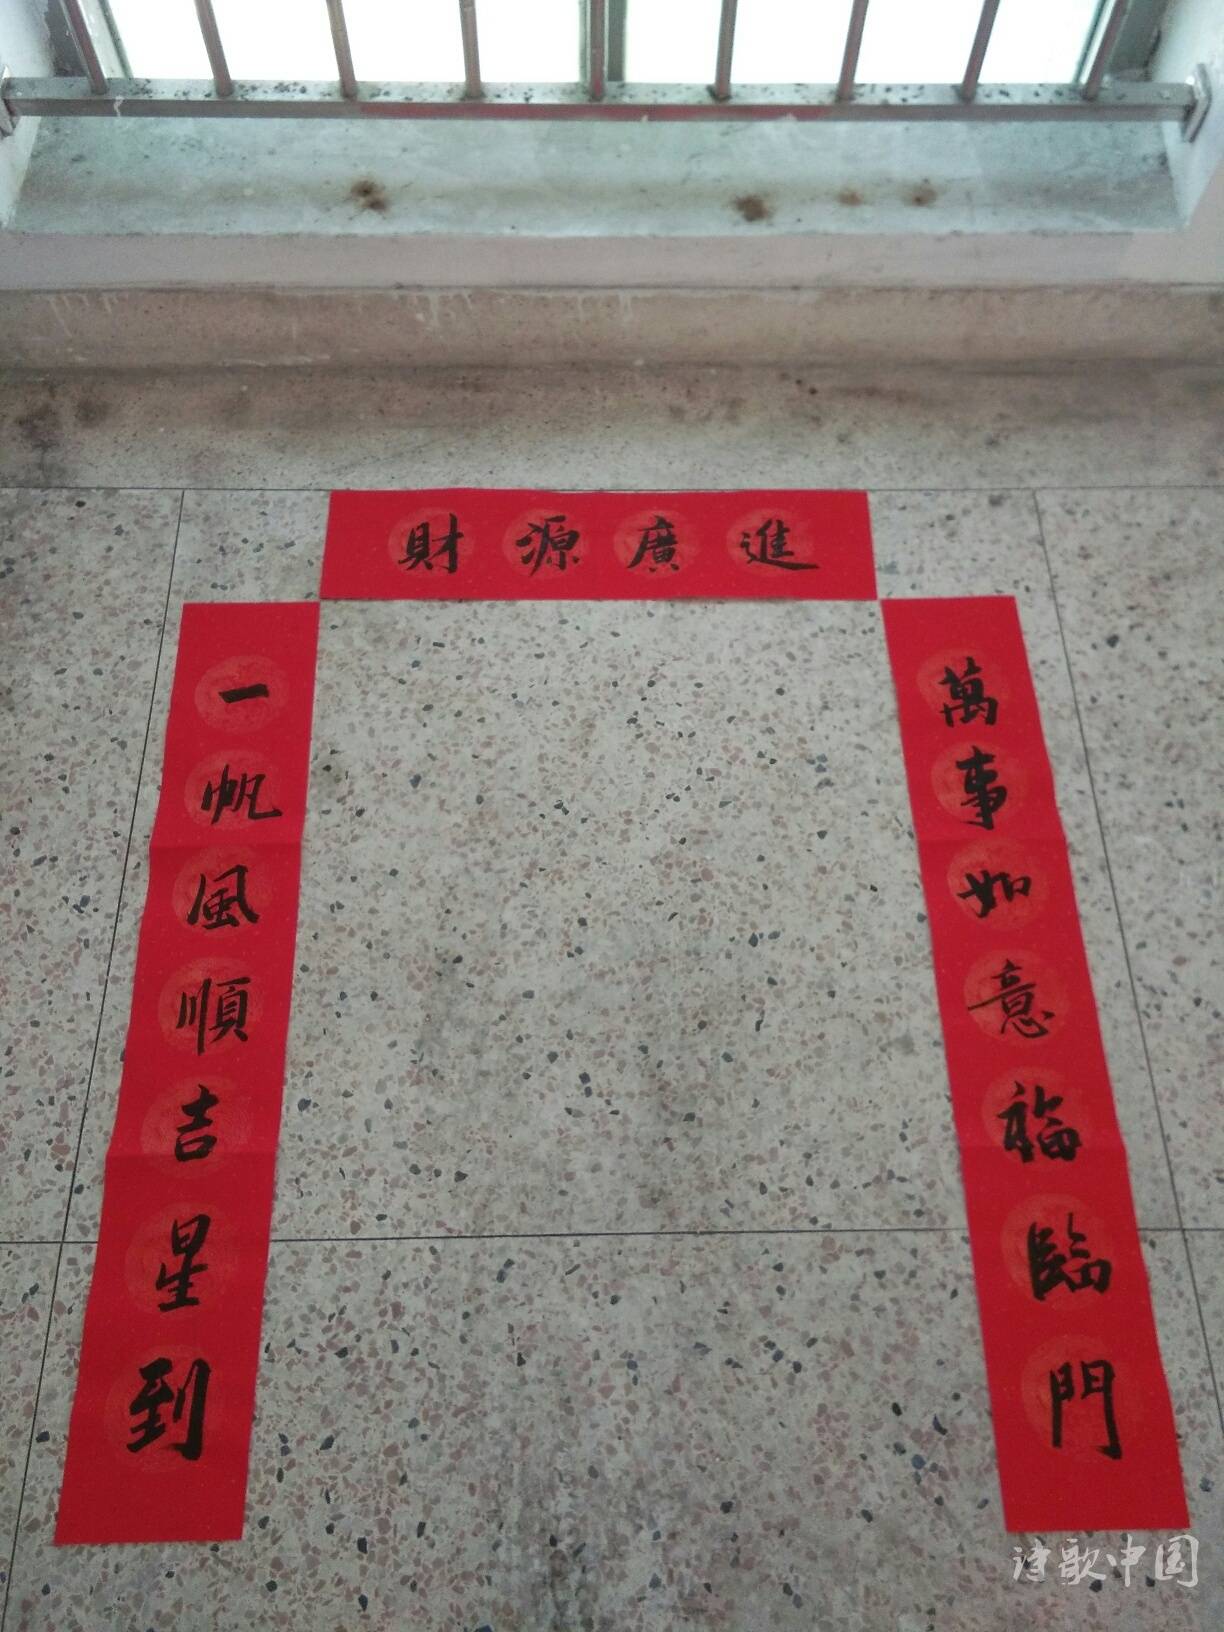 財源廣進
一帆風順吉星到
萬事如意福臨門
诗歌中国